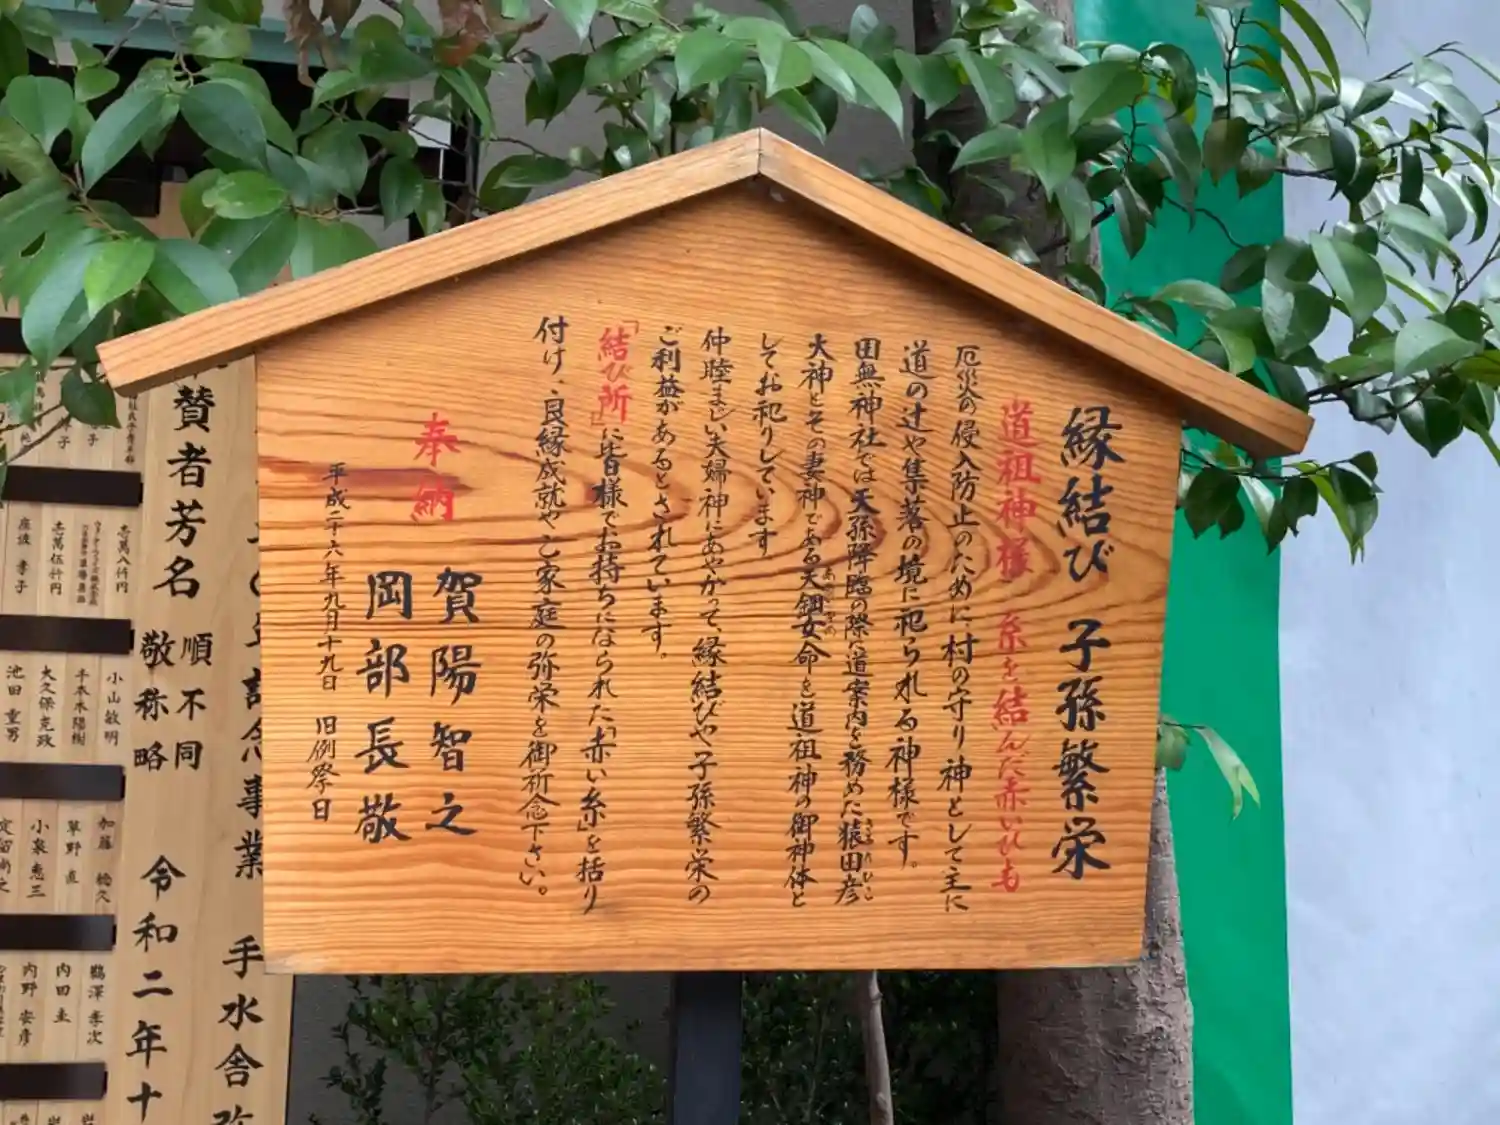 縁結び 子孫繁栄
道祖神様 糸を結んだ赤いひも
厄災の侵入防止のために村の守り神として主に
道の辻や集落の境に祀られる神様です。
田無神社では天孫降臨の際に道案内を務めた猿田彦
さるたひこ
大神とその妻神である天鈿女命を道祖神の御神体と
してお祀りしています
仲睦まじい夫婦神にあやかって、縁結びや子孫繁栄の
ご利益があるとされています。
「結び所」に皆様でお持ちになられた「赤い糸」を括り
付け、良縁成就やご家庭の弥栄を御祈念下さい。
奉納
賀陽智之
岡部長敬
平成二十六年九月十九日 旧例祭日
年記念事業 手水舎
賛者芳名 順不同 敬称略 令和二年十
壱萬八仟円
壱萬伍仟円
座波 孝子
小山 敏明
千本木 陽樹
大久保 克政
池田 重男
加藤 
草野 直
小泉 恵三
鶴澤 孝次
内田 圭
内野 安彦